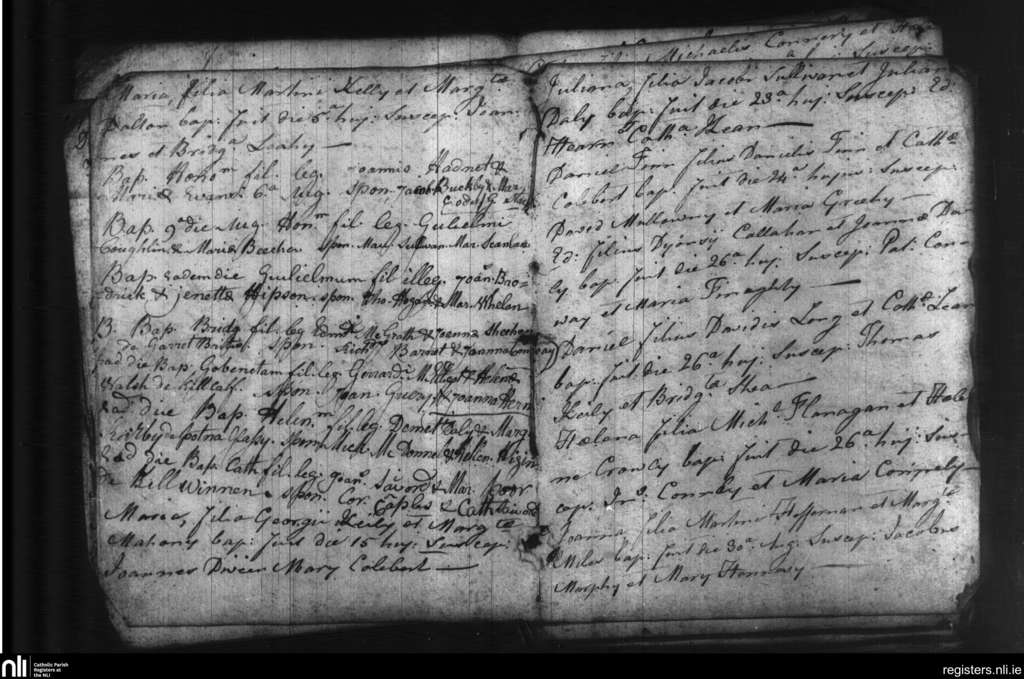 Maria, filia Martini Kelly et Marg.te
Dalton bap: fuit die 6.a huj: Suscep: Joan-
nes et Bridg.a Leahy —
Bap. Honor.m fil. leg. Joannis Hadnet &
Mariæ Evans. 6.a Aug. Spon. Jacob. Buckly & Mar.
Bap. 9.a die Aug. Hon.m fil. leg. Gulielmi
Coughlin & Mariæ Spon. Mau. Sulivan Mar. Scanlan
Bap. eadem die Gulielmum fil illeg. Joan.
& Jenett Hipson. spon. Tho. Hogan & Mar. Whelen
B. Bap. Bridg. fil. leg. Edm.di McGrath & Joannæ Sheehy
de Garret spon. Rich.d Barret & Joanna Conway
Ead die Bap. Gobenetam fil. leg. Gerrardi & Helenæ
Walsh de Spon. Joan. & Joanna Hern
Ead die Bap. Helen.m fil. leg. Demett. Daly & Marg.
Spon. Mich. McDonnel & Helen.
Ead die Bap. Cath. fil. leg. Joan. & Mar. Poor
de Killwinnen. spon. Cor. & Cath.
Maria, filia Georgii Keily et Marg.te
Mahony bap: fuit die 15 huj: Suscep:
Joannes Dwier Mary Colebert —
Michaelis Connery et
Juliana, filia Jacobi Sullivan et Julianæ
Daly bap: fuit die 23.a huj: Suscep: Ed:
Hearn Cath.a Kean —
Daniel Finn filius Danielis Finn et Cath.æ
Colebert bap: fuit die 24.a hujus: Suscep:
David Mullowny et Maria Greehy —
Ed: filius Dyonisij Callahan et Joannæ Da-
ly bap: fuit die 26.a huj: Suscep: Pat: Con-
way et Maria Finaghty —
Daniel filius Davidis Long et Cath.æ Lean
bap: fuit die 26.a huj: Suscep: Thomas
Keily et Bridg.ta Shea —
Hælena filia Mich.l Flanagan et Hæle
næ Crowly bap: fuit die 26.a huj: Sus-
cep: Jn.s Connly et Maria
Joanna filia Martini Heffernan et Marg.te
Miles bap: fuit die 30.a Aug: Suscep: Jacobus
Murphy et Mary Hannay —
nli
Catholic Parish
Registers at
the NLI
registers.nli.ie